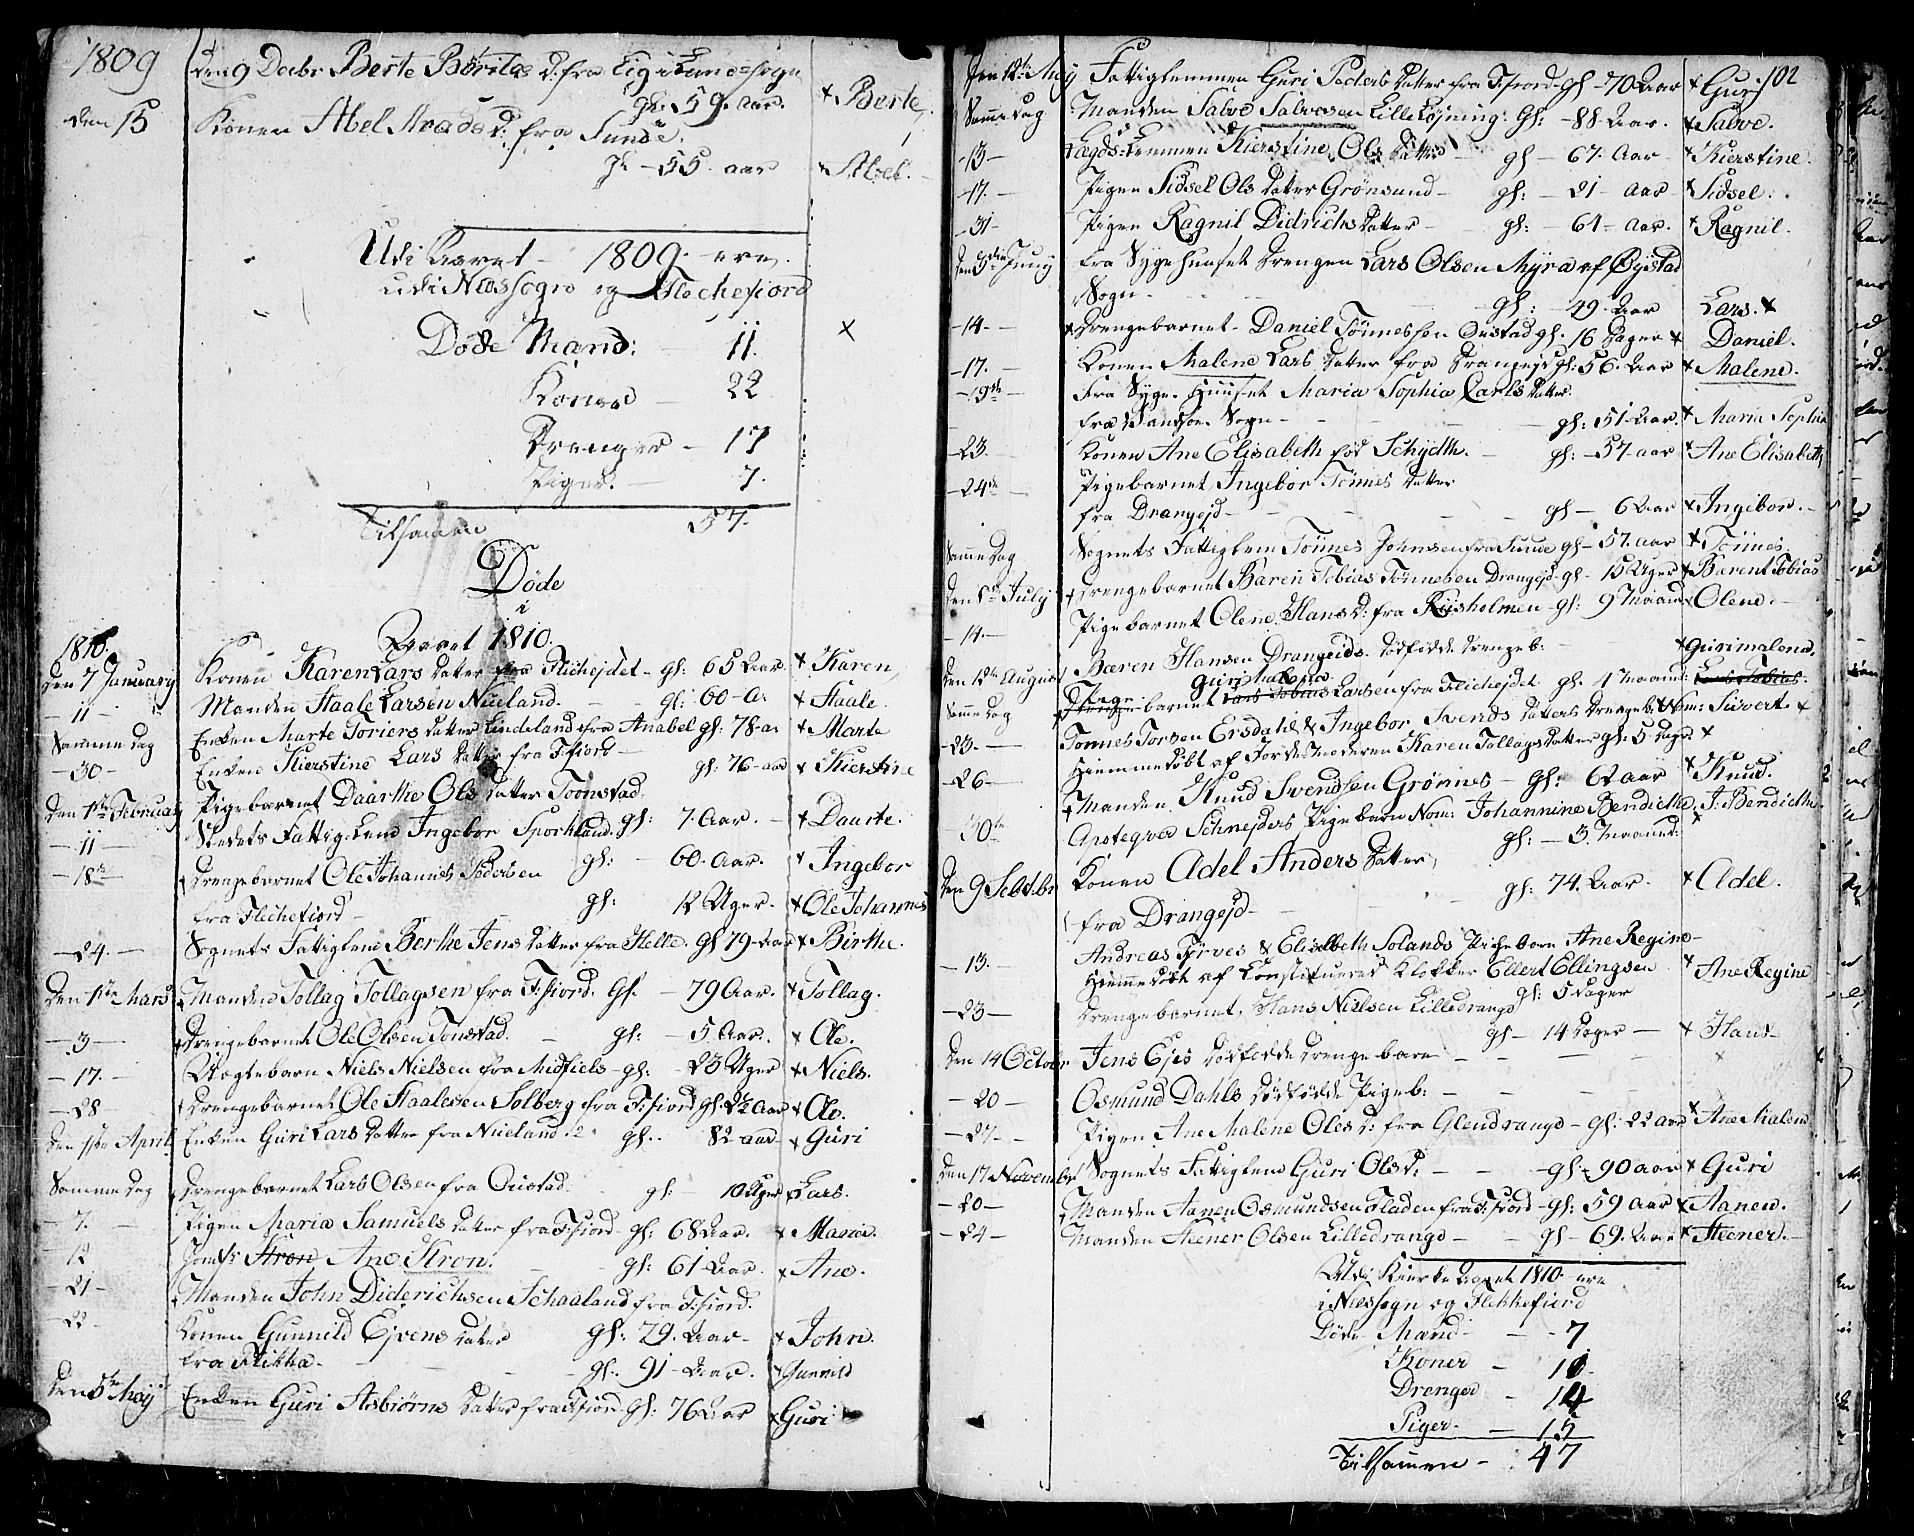 1809
den 9 Decbr Berte Børils D: fra Eig i Lunde sogn
gl: 59. aar. × Berte.
den 15 Konen Abel Mads D: fra Sunde.
gl - 55. aar × Abel.
Udi Aaret - 1809. ere
udi Nessogn og Flechefiord
Døde Mænd: - 11. ×
Koner - 22
Drenger - 17
Piger. - 7.
Tilsamen 57.
Døde
i
Aaret 1810.
1810.
den 7 January Konen Karen Lars Datter fra Flichejdet - gl: 65 Aar × Karen
- 11 - Manden Staale Larsen Nueland. - gl: 60 - a. × Staale.
Samme dag Enken Marte Toriers Datter Lindeland fra Anabel gl: 78 - a. × Marte
- 30 - Enken Kierstine Lars Datter fra F:fiord - gl: 76 - aar × Kierstine
den 1ste February Pigebarnet Daarthe Ols Datter Toonstad.
gl: 7. Aar. - × Daarte.
- 11 - Stedets Fattig-Lem Ingebor Sporkland.
gl: - 60. Aar. × Ingebor
- 18de Drengebarnet Ole Johannes Pedersen
fra Flechefiord - gl: 12 Uger. - × Ole Johannes
- 24. - Sognets Fattiglem Berthe Jens Datter fra Helle. gl 79 - Aar × Birthe.
den 1ste Marts Manden Tollag Tollagsen fra F:fiord. gl. - 79 Aar. × Tollag.
- 3 - Drengebarnet Ole Olsen Tonstad. - gl: - 5 Aar. × Ole.
- 17. - Uægtebarn Niels Nielsen fra Midfiels - gl: - 23 Uger × Niels.
- 28 Drengebarnet Ole Staalesen Solberg fra F:fiord gl: 2½ Aar × Ole.
den 1ste April Enken Guri Lars Datter fra Nueland gl.. 82 aar - × Guri
Samme dag Drengebarnet Lars Olsen fra Øustad. gl: - 10 Uger × Lars.
- 7. - Pigen Maria Samuels Datter fra F:fiord - gl: 68 Aar. × Maria.
- 12 Jomfr Ane Kron. - gl: 61 - Aar. × Ane.
- 21 - Manden John Diderichsen Schaaland fra F:fiord.
gl: 29. Aar - × John.
- 22 - Konen Gunnild Ejvens Datter
fra Stikha - gl: 91 - Aar. × Gunnild
den 5te Maÿ Enken Guri Asbiørns Datter fra F:fiord. gl: 76 Aar × Guri
102
den 12te Maÿ Fattiglemmen Guri Peders Datter fra F:fiord - gl - 70 Aar × Guri
Samme dag Manden Salve Salvesen Lille Løyning: Gl: - 88 - Aar. × Salve.
- 13 - Lægds-Lemmen Kierstine Ols Datter - gl - 67. Aar × Kierstine.
- 17. - Pigen Sidsel Ols Datter Grønsund - gl: - 21 - aar × Sidsel.
- 31 - Pigen Ragnil Didrichs Datter - gl: - 61 - Aar. × Ragnil.
den 5te Juny fra Sygehuuset Drengen Lars Olsen Myra af Øystad
Sogn - gl: - 49. Aar Lars. ×
- 14. - × Drengebarnet - Daniel Tønnessen Øustad gl. 16 Dager × Daniel.
- 17. - Konen Malene Lars Datter fra Drangejd gl: 56. Aar × Malene.
- 19de - Fra Syge-Huuset Maria Sophia Carls Datter
fra Vandsøe Sogn - gl: 51 - Aar. × Maria Sophia
- 23. Konen Ane Elisabeth fød Schjdth. - gl: - 57 - aar × Ane Elisabeth
- 24de - Pigebarnet Ingebor Tønnes Datter
fra Drangejd - gl - 6 Aar × Ingebor. -
Samme dag Sognets Fattiglem Tønnes Johnsen fra Sunde gl - 57. aar × Tønnes
den 1ste July Drengebarnet Baren Tobias Tønnesen Drangejd - gl - 15 Uger × Barent Tobias
- 11. - Pigebarnet Olene Hans D: fra Rysholmen - gl: 9 Maaned × Olene. -
den 12te August Bæren Hansen Drangeids. dødfødde Drengeb:
Guri Malena × Gurimalona.
Samme dag Pige barnet Larsen fra Flichejdet gl: 1 Maaned:
- 23. - Tønnes Torsen Ersdahl & Ingebor Svends Datters Drengeb: Nom: Sivert. ×
Hiemmedøbt af Jordemoderen Karen Tollags Datter gl: 5 Dager ×
- 26 - Manden Knud Svendsen Grønnes - gl: 62 aar × Knud.
30te Apotegver Schnejders Pigebarn Nom: Johannine Bendicthe. J: Bendicthe.
gl: - 3. Maaned: ×
den 9 Sebtbr Konen Adel Anders Datter,
fra Drangejd - gl: 74. Aar. × Adel.
- 13. - Andreas Tørves & Elisabeth Solands Pigebarn Ane Regine -
Hiemmedøbt af Constitueret Klokker Ellert Ellingsen × Ane Regine
gl: 5 Dager
- 23 - Drengebarnet, Hans Nielsen Lilledrangd
gl - 14 Dager - × Hans
den 14 Octobr Jens Ejes dødfødde Drengebarn - ×
- 20 - Osmund Dahls dødfødde Pigeb: -
- 27. - Pigen Ane Malene Oles D: fra Glendrangd - gl: 22 aar × Ane Malene
den 17 November Sognets Fattiglem Guri Ols D: - gl: - 90 aar × Guri
- 20 - Manden Aanen Osmundsen Fladen fra F:fiord - gl: 59 Aar × Aanen.
- 24 - Manden Steener Olsen Lilledrangd - gl - 69. Aar × Steener. -
Udi Kierke Aaret 1810. ere
i Nessogn og Flekkefiord
Døde Mænd - 7
Koner - 10
Drenger - 14
Piger. - 15
Tilsamen - 47